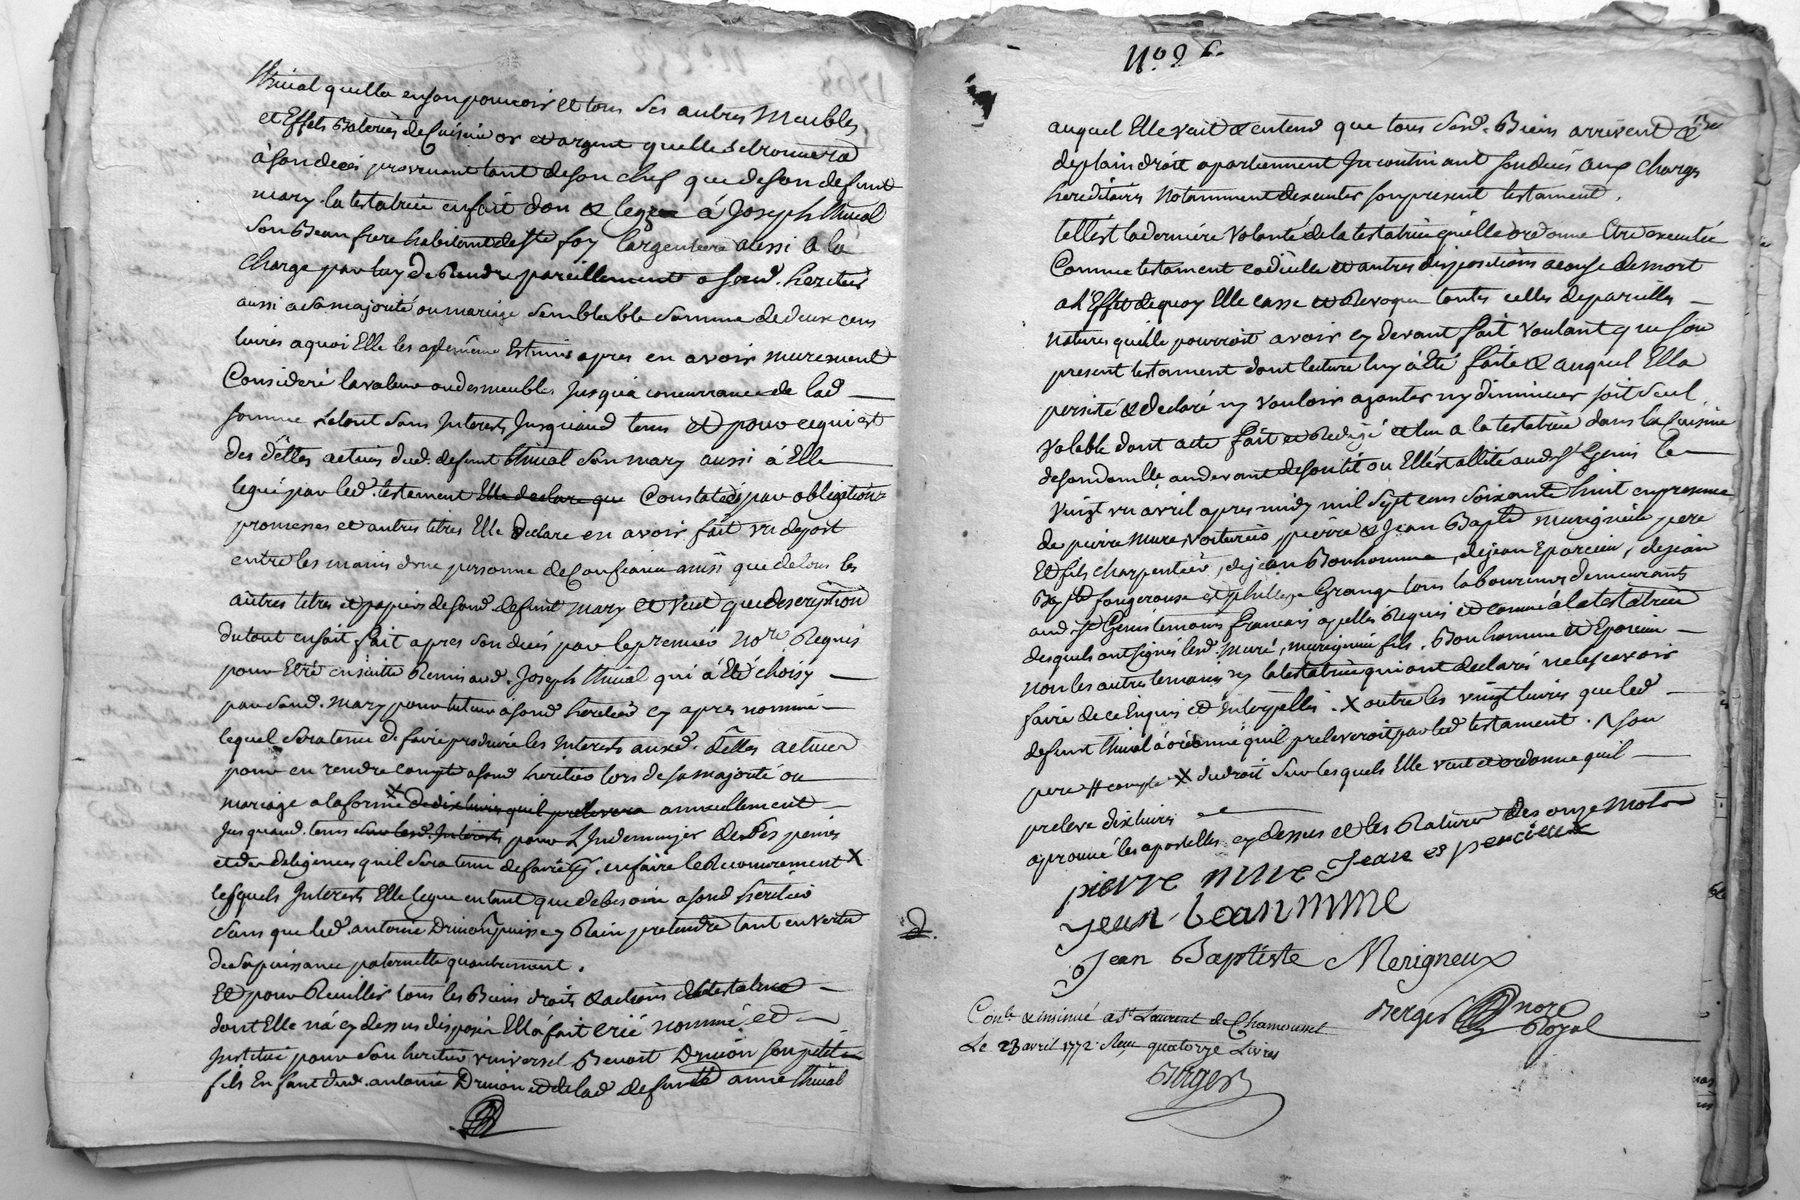 Thival quella enson pouvoir et tous ses autres Meubles
et Effets Bateries de Cuisine or et argent quelle delronnera
à son deces provenant tant de son chef que de son defunt
mary. la testatrice en fait don & legue à Joseph Thival
son Beau frere habitant de Ste foy l'argentiere aussi a la
charge par luy de Rendre pareillement a sond. heritier
aussi a sa majorité ou mariage semblable somme de deux cens
livres a quoi Elle les a elle même Estimés apres en avoir murement
Consideré la valeur ou des meubles jusqu'a concurrance de lad
somme le tout sans Interets jusquaud tems et pour ce qui est
des dettes actives dud. defunt Thival son mary aussi à Elle
legué par led. testament Elle declare que Constatées par obligations
promesses et autres titres Elle Declare en avoir fait un depost
entre les mains d'une personne de Confiance ainsi que de tous les
autres titres et papiers de sond. defunt mary et veut que description
du tout en soit fait apres son deces par le premier Nore Requis
pour Etre ensuitte Remis aud. Joseph Thival qui à été choisy
par sond. mary pour tuteur a sond heritier cy apres nommé
lequel sera tenu de faire produire les Interets auxd. dettes actives
pour en rendre compte a sond heritier lors de sa majorité ou
mariage a la forme X de dix livres quil prelevera annuellement
jusquaud. tems sur lesd. Interets pour L'Indemniser de ses peines
et des diligences quil sera tenu de faire en faire le Recouvrement X
lesquels Interets Elle legue en tant que de besoin a sond heritier
sans que led. antoine Drivon puisse y Rien pretendre tant en vertu
de sa puissance paternelle qu'autrement.
Et pour Recuillir tous les Biens droits & actions de la testatrice
dont Elle n'a cy dessus disposé Ella fait creé nommé et
Institué pour son heritier universel Benoit Drivon son petit
fils Enfant dud. antoine Drivon et de lad defunte anne Thival
No 9 6.
auquel Elle veut & entend que tous sesd. Biens arrivent &
de plain droit apartiennent Incontinant son deces aux charges
hereditaires Notamment d'executer son present testament.
telle est la derniere volonté de la testatrice qu'elle ordonne Etre executée
Comme testament codicille et autres dispositions a cause de mort
a l'Effet de quoy Elle casse et Revoque toutes celles de pareilles
natures quelle pourroit avoir cy devant fait voulant que son
present testament dont lecture luy à été faite & auquel Ella
persisté & declaré ny vouloir ajouter ny diminuer soit seul
valable dont acte fait et Redigé et lu a la testatrice dans la Cuisine
de son domille au devant de son lit ou Elle est allitée aud St Genis le
vingt un avril apres midy mil sept cens soixante huit en presence
de pierre Mure voiturier, pierre & Jean Bapte Marignieu pere
et fils charpentiers, de jean Bonhomme, de jean Eparcieu, de jean
Bapte fougerouse et philippe Grange tous laboureurs demeurants
aud. St Genis temoins francais apellés Requis et connus à la testatrice
desquels ont signés lesd. Mure, Marignieu fils. Bonhomme et Eparcieu
non les autres temoins ny la testatrice qui ont declarés ne le scavoir
faire de ce Enquis et Interpellés. X outre les vingt livres que led
defunt Thival à ordonné quil preleveroit par led testament. ^ son
pere # compte X du droit sur lesquels Elle veut et ordonne quil
preleve dix livres
aprouvé les apostilles cy dessus et les Ratures des onze mots
pierre mure Jean Eparcieux
Jean boanmme
Jean Baptiste Merigneux
Berger nore Royal
d.
Conle & insinué a St Laurent de Chamousset
Le 23 avril 1772 Reçu quatorze Livres
Berger